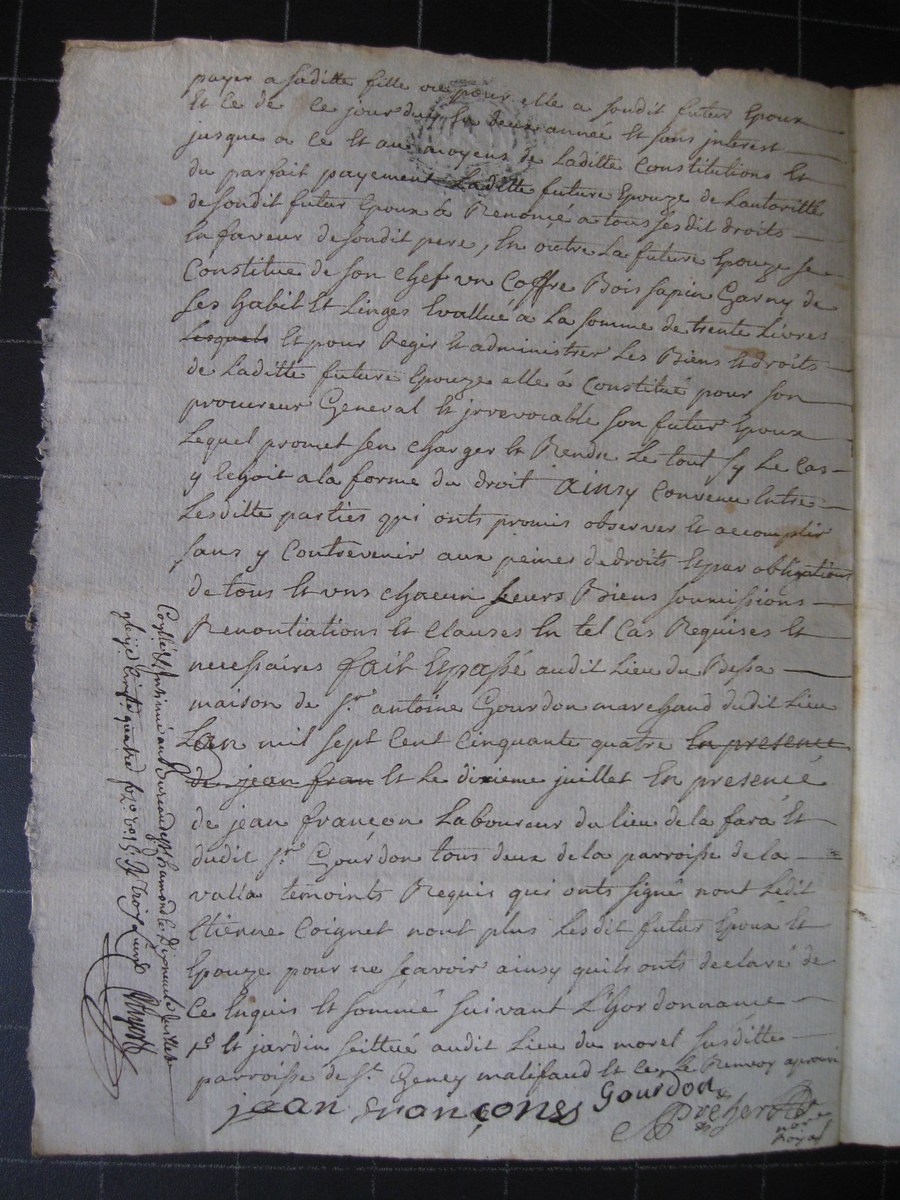 payer a saditte fille ou pour elle a sondit futur Epoux
Et ce de ce jourduy En deux année Et sans interest
jusque a ce Et au moyens de Laditte Constitutions Et
du parfait payement Laditte future Epouze de Lautoritté
desondit futur Epoux à Renoncé a tous ses dit droits
En faveur desondit pere, En outre La future Epouze se
Constitue de son chef un Coffre Bois sapin Garny de
ses habit Et Linges Evalluéé a La somme de trente Livres
Lesquels Et pour Regir Et administrer Les Biens Et droits
de Laditte future Epouze elle à Constitué pour son
procureur General Et jrrevocable son futur Epoux
Lequel promet sen charger Et Rendre Le tout sy Le Cas
y Echoit a la forme du droit Ainsy Convenu Entre
Lesditte parties qui onts promis observer Et accomplir
sans y Contrevenir aux peines de droits Et par obligations
de tous Et uns chacun Leurs Biens soumissions
Renontiations Et Clauses En tel Cas Requises Et
necessaires fait Et passé audit Lieu du Bessa
maison de Sr. antoine Gourdon marchand dudit Lieu
Lan mil sept Cent Cinquante quatre En presence
de jean fran Et Le dixieme juillet En presencé
de jean françon Laboureur du Lieu de la fara Et
dudit Sr. Gourdon tous deux de la parroisse de la
valla temoints Requis qui onts signé nont Ledit
Etienne Coignet nont plus Lesdit futur Epoux Et
Epouze pour ne sçavoir ainsy quils onts declaré de
Ce Enquis Et sommé suivant L'hordonnance
Et jardin scittué audit Lieu du moret susditte
parroisse de St. Geney malifaud Et Le Renvoy aprouvé
jean françones Gourdon
nore
Royal
Conllé Et Insinué au Bureau de St. Chamond Le Dixneuf Juillet
Cinqte. quatre fo. Vo. Rt. trois